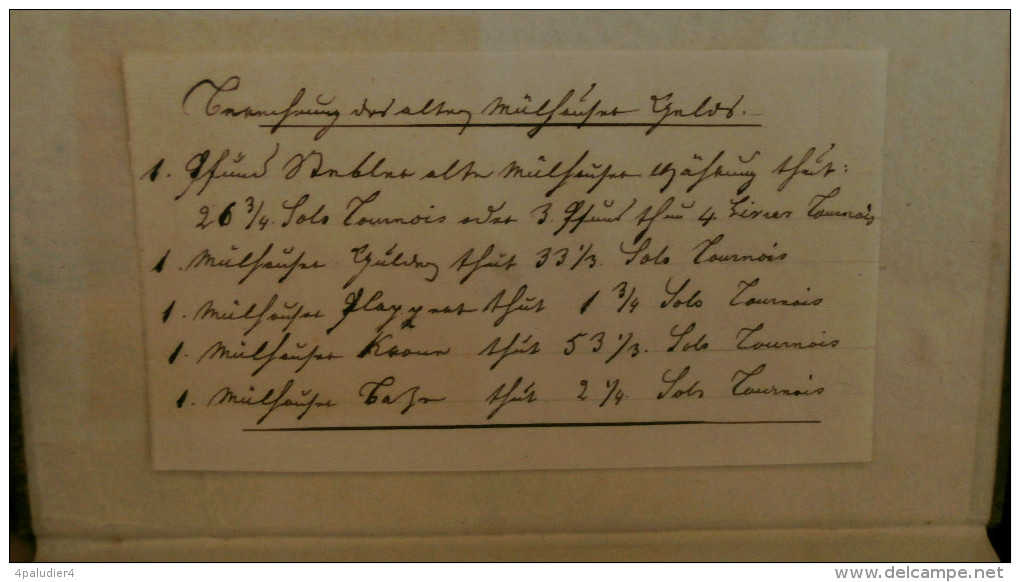 Berechnung des alten Mülhauser Gelds.
1. Pfund Stebler alte Mülhauser Währung thut:
26 3/4. Sols Tournois oder 3. Pfund thun 4. Livres Tournois
1. Mülhauser Gulden thut 33 1/3. Sols Tournois
1. Mülhauser Plappert thut 1 3/4 Sols Tournois
1. Mülhauser Krone thut 53 1/3. Sols Tournois
1. Mülhauser Batze thut 2 1/4. Sols Tournois
4paludier4
www.delcampe.net